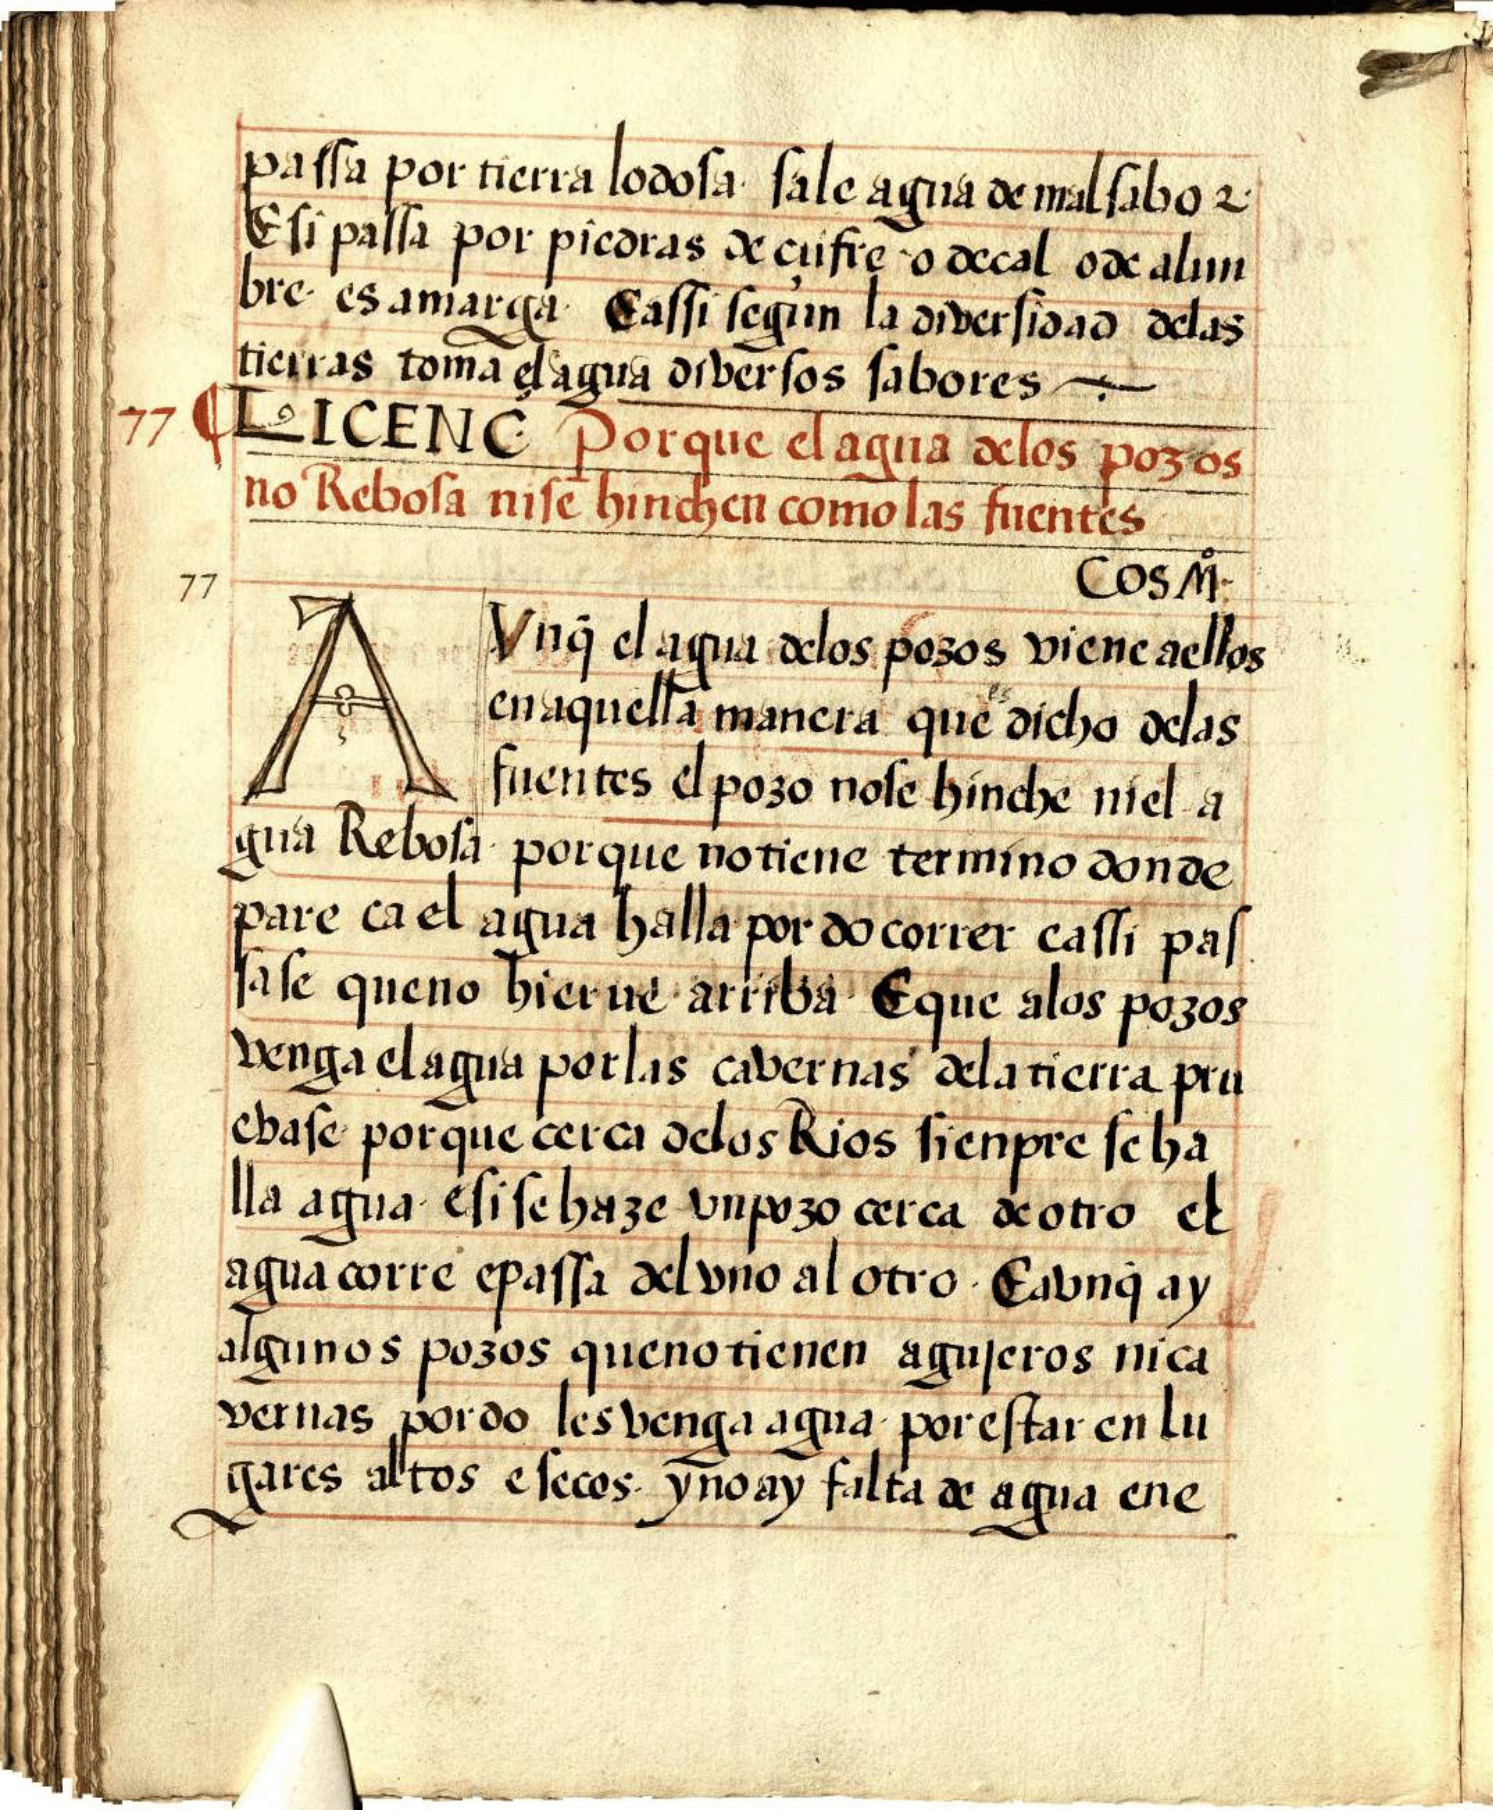 passa por tierra lodosa. sale agua de mal sabor.
E si passa por piedras de çufre. o de cal o de alun
bre. es amarga. E assi segun la diversidad delas
tierras toma el agua diversos sabores
77 LICENÇ. Porque el agua delos pozos
no Rebosa ni se hinchen como las fuentes
COSM̊.
77
AVnq̄ el agua delos pozos viene a ellos
en aquella manera que es dicho delas
fuentes el pozo no se hinche ni el a
gua Rebosa. porque no tiene termino donde
pare ca el agua halla por do correr e assi pas
sase que no hierue arriba. E que alos pozos
venga el agua por las cavernas dela tierra pru
evase porque cerca delos Rios sienpre se ha
lla agua. e si se haze vn pozo cerca de otro el
agua corre e passa del vno al otro. E avnq̄ ay
algunos pozos que no tienen agujeros ni ca
vernas por do les venga agua. por estar en lu
gares altos e secos. y no ay falta de agua ene